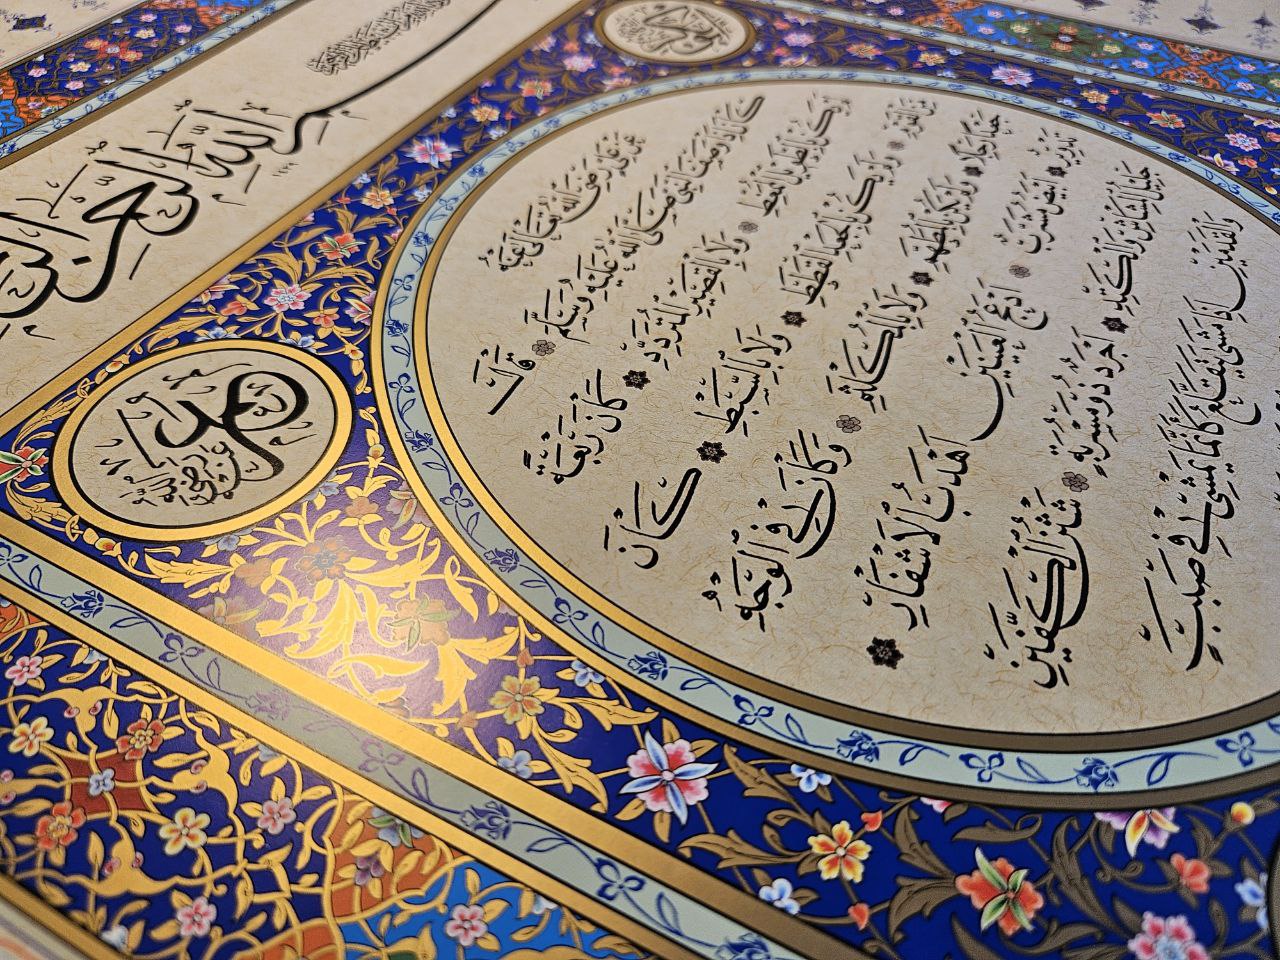 بسم الله الرحمن
عمر رضي الله عنه
عن علي رضي الله عنه
كان إذا وصف النبي صلى الله عليه وسلم قال
لم يكن بالطويل الممغط ولا بالقصير المتردد كان ربعة
من القوم ولم يكن بالجعد القطط ولا بالسبط كان
جعدا رجلا ولم يكن بالمطهم ولا بالمكلثم وكان في الوجه
تدوير أبيض مشرب أدعج العينين أهدب الأشفار
جليل المشاش والكتد أجرد ذو مسربة شثن الكفين
والقدمين إذا مشى يتقلع كأنما يمشي في صبب